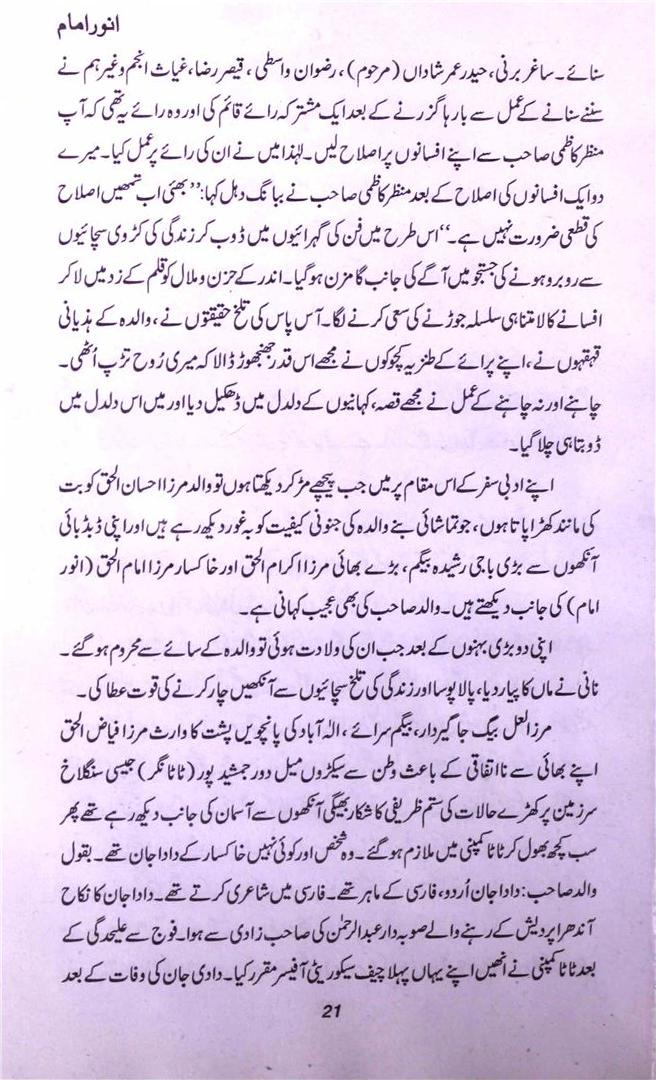 انور امام
سنائے۔ ساغر برنی، حیدر عمر شاداں (مرحوم)، رضوان واسطی، قیصر رضا، غیاث انجم وغیرہم نے
سننے سنانے کے عمل سے بارہا گزرنے کے بعد ایک مشترکہ رائے قائم کی اور وہ رائے یہ تھی کہ آپ
منظر کاظمی صاحب سے اپنے افسانوں پر اصلاح لیں۔ لہٰذا میں نے ان کی رائے پر عمل کیا۔ میرے
دو ایک افسانوں کی اصلاح کے بعد منظر کاظمی صاحب نے ببانگ دہل کہا: ’’بھئی اب تمھیں اصلاح
کی قطعی ضرورت نہیں ہے۔‘‘ اس طرح میں فن کی گہرائیوں میں ڈوب کر زندگی کی کڑوی سچائیوں
سے روبرو ہونے کی جستجو میں آگے کی جانب گامزن ہوگیا۔ اندر کے حزن و ملال کو قلم کے زد میں لاکر
افسانے کا لامتناہی سلسلہ جوڑنے کی سعی کرنے لگا۔ آس پاس کی تلخ حقیقتوں نے، والدہ کے ہذیانی
قہقہوں نے، اپنے پرائے کے طنزیہ کچوکوں نے مجھے اس قدر جھنجھوڑ ڈالا کہ میری رُوح تڑپ اُٹھی۔
چاہنے اور نہ چاہنے کے عمل نے مجھے قصہ، کہانیوں کے دلدل میں ڈھکیل دیا اور میں اس دلدل میں
ڈوبتا ہی چلا گیا۔
اپنے ادبی سفر کے اس مقام پر میں جب پیچھے مڑ کر دیکھتا ہوں تو والد مرزا احسان الحق کو بت
کی مانند کھڑا پاتا ہوں، جو تماشائی بنے والدہ کی جنونی کیفیت کو بہ غور دیکھ رہے ہیں اور اپنی ڈبڈبائی
آنکھوں سے بڑی باجی رشیدہ بیگم، بڑے بھائی مرزا اکرام الحق اور خاکسار مرزا امام الحق (انور
امام) کی جانب دیکھتے ہیں۔ والد صاحب کی بھی عجیب کہانی ہے۔
اپنی دو بڑی بہنوں کے بعد جب ان کی ولادت ہوئی تو والدہ کے سائے سے محروم ہوگئے۔
نانی نے ماں کا پیار دیا، پالا پوسا اور زندگی کی تلخ سچائیوں سے آنکھیں چار کرنے کی قوت عطا کی۔
مرزا لعل بیگ جاگیردار، بیگم سرائے، الٰہ آباد کی پانچویں پشت کا وارث مرزا فیاض الحق
اپنے بھائی سے نااتفاقی کے باعث وطن سے سیکڑوں میل دور جمشید پور (ٹاٹا نگر) جیسی سنگلاخ
سرزمین پر کھڑے حالات کی ستم ظریفی کا شکار بھیگی آنکھوں سے آسمان کی جانب دیکھ رہے تھے پھر
سب کچھ بھول کر ٹاٹا کمپنی میں ملازم ہوگئے۔ وہ شخص اور کوئی نہیں خاکسار کے دادا جان تھے۔ بقول
والد صاحب: دادا جان اُردو، فارسی کے ماہر تھے۔ فارسی میں شاعری کرتے تھے۔ دادا جان کا نکاح
آندھرا پردیش کے رہنے والے صوبہ دار عبدالرحمٰن کی صاحب زادی سے ہوا۔ فوج سے علیحدگی کے
بعد ٹاٹا کمپنی نے انھیں اپنے یہاں پہلا چیف سیکوریٹی آفیسر مقرر کیا۔ دادی جان کی وفات کے بعد
21